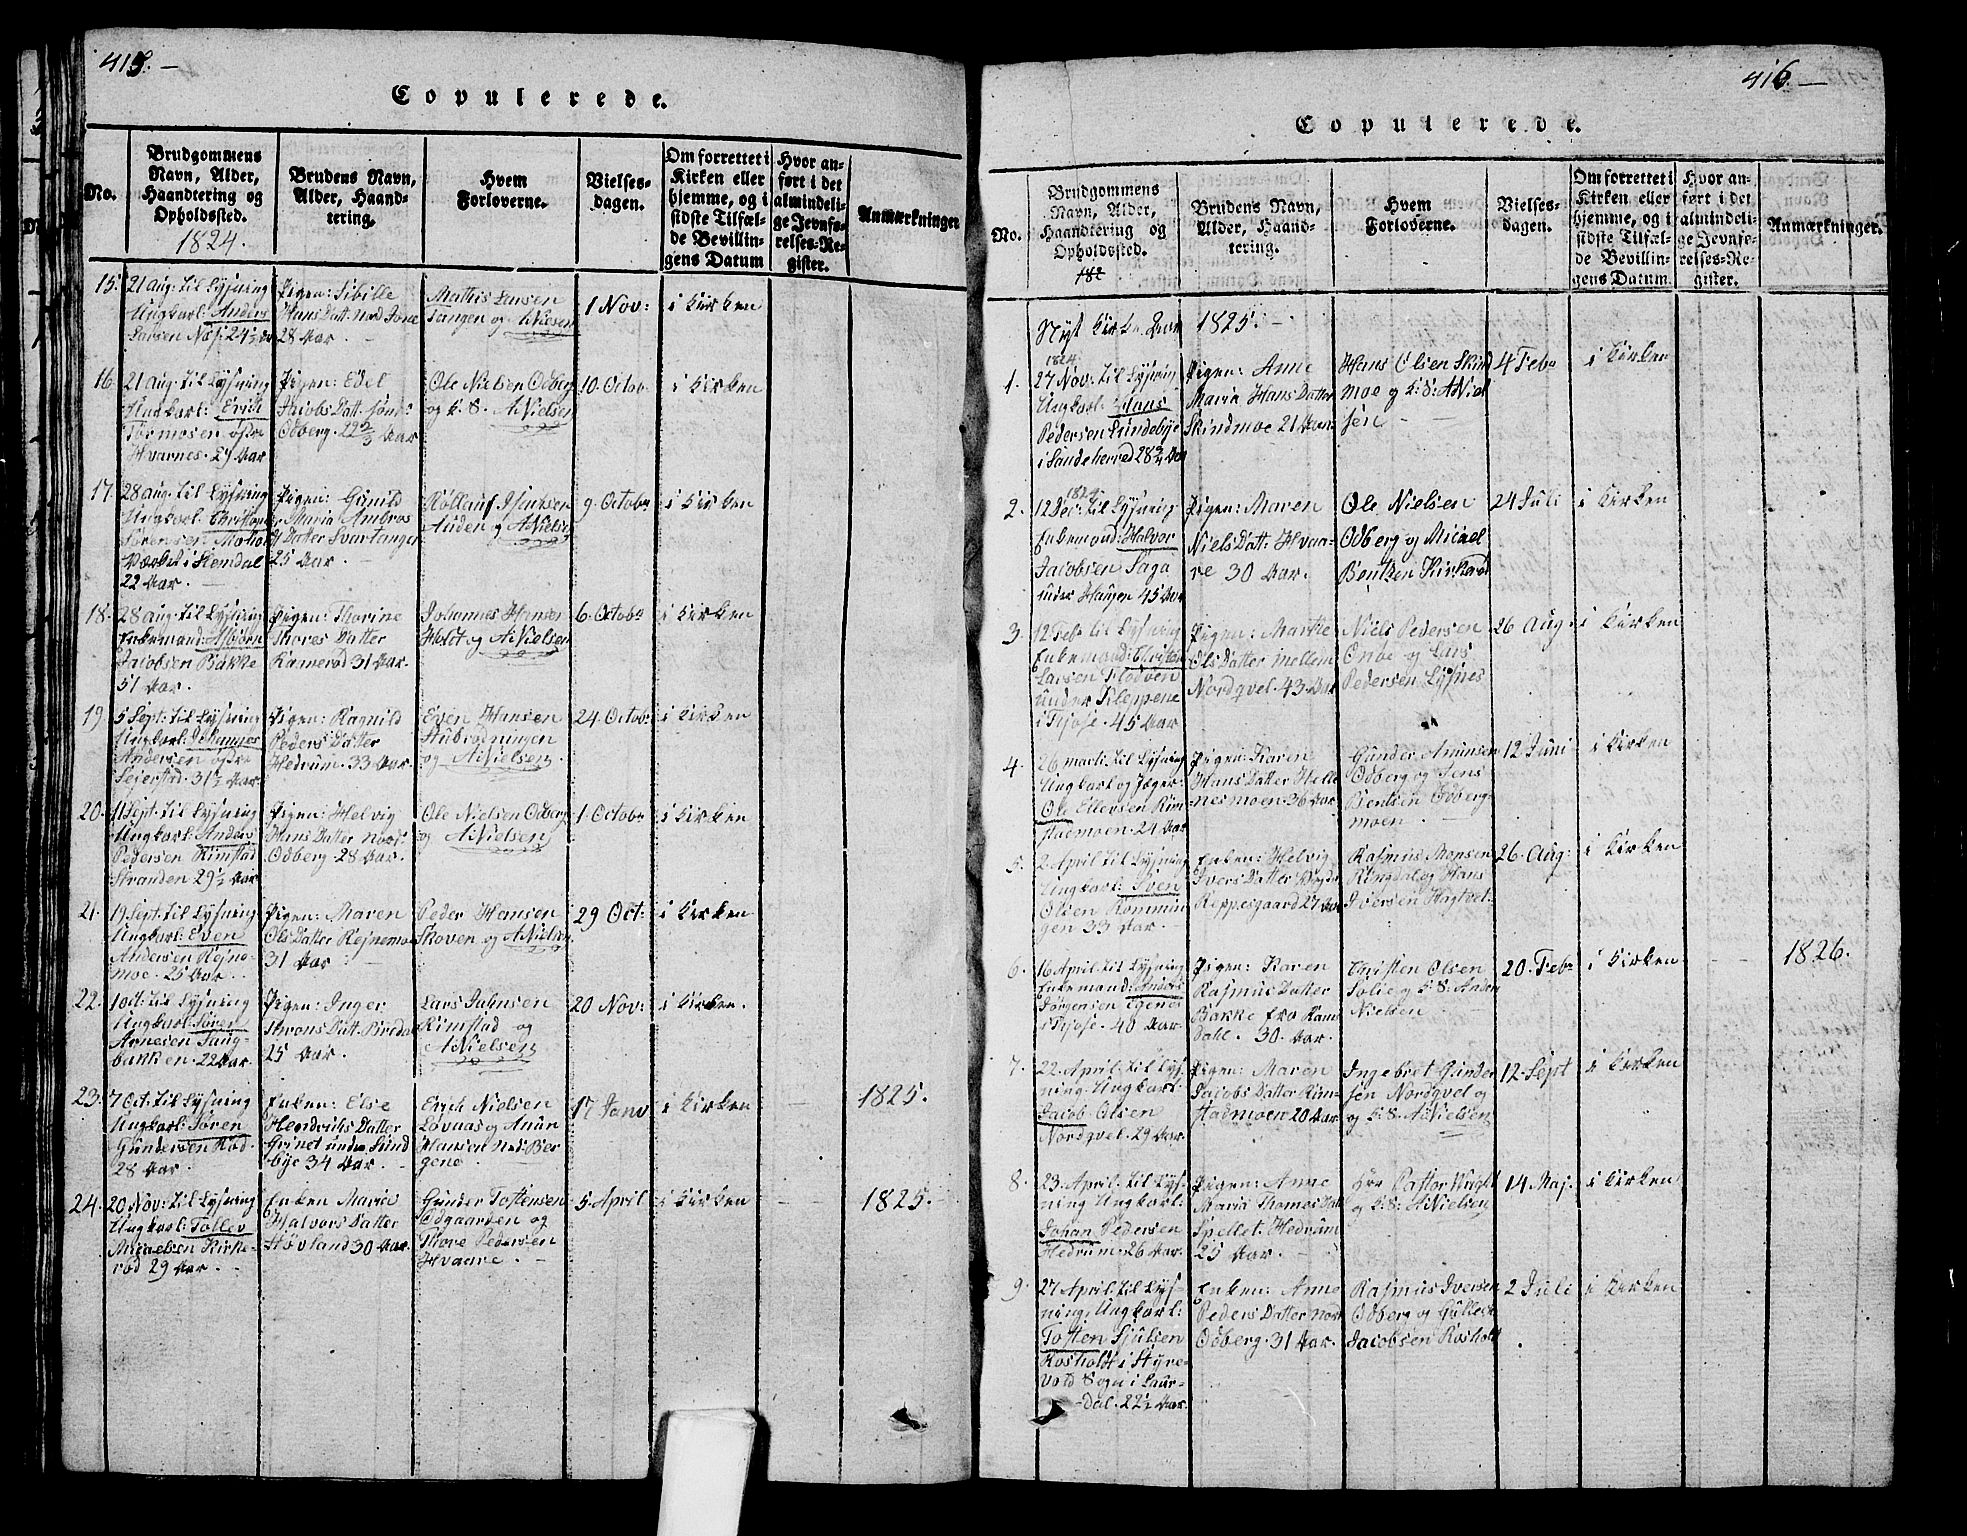 415. —
Copulerede.
No.
Brudgommens
Navn, Alder,
Haandtering og
Opholdssted.
1824.
Brudens Navn,
Alder, Haand-
tering.
Hvem
Forloverne.
Vielses-
dagen.
Om forrettet i
Kirken eller
hjemme, og i
sidste Tilfæl-
de Bevillin-
gens Datum
Hvor an-
ført i det
almindeli-
ge Jevnfø-
relses-Re-
gister.
Anmærkninger
15.
21 Aug: til Lysning
Ungkarl: Anders
Larsen Nøs: 24½ Aar
Pigen: Sibille
Hans Datt:
28 Aar.
Mathis Larsen
Tangen og A:Nielsen
1 Nov:
i Kirken
16.
21 Aug: til Lysning
Ungkarl: Erich
Tormosen øfre
Hvarnes. 27 Aar
Pigen: Edel
Jacobs Datt: sønd:
Odberg. 22 2/3 Aar
Ole Nielsen Odberg
og K:S. A:Nielsen
10. Octob.
i Kirken
17.
28 Aug: til Lysning
Ungkarl: Christopher
Sørensen Moholt
Værket i Slemdal
22 Aar.
Pigen: Gunild
Maria Ambros
Datter Svartangen
25 Aar.
Rollauf Isachsen
Anden og A:Nielsen
9. Octobr
i Kirken
18.
28 Aug: til Lysning
Enkemand: Asbjørn
Jacobsen Bakke
51 Aar.
Pigen: Thorine
Thores Datter
Ramerød 31 Aar.
Johannes Hansen
Holdt og A:Nielsen
6. Octobr
i Kirken
19.
5 Sept: til Lysning
Ungkarl: Johannes
Andersen øfre
Seierstad. 31½ Aar.
Pigen: Ragnild
Peders Datter
Hedrum. 33 Aar.
Even Hansen
Stubrødningen
og A:Nielsen
24. Octobr
i Kirken
20.
11 Sept: til Lysning
Ungkarl: Anders
Pedersen Rimstad
Stranden 29½ Aar
Pigen: Helvig
Hans Datter nor:
Odberg 28 Aar.
Ole Nielsen Odberg
og A:Nielsen
1. Octobr
i Kirken
21.
19 Sept: til Lysning
Ungkarl: Even
Andersen Rejne-
moe. 25 Aar.
Pigen: Maren
Ols Datter Rejnemoe
31 Aar
Peder Hansen
Skoven og A:Nielsen
29 Oct:
i Kirken
22.
1 Oct: til Lysning
Ungkarl: Søren
Arnesen Haug-
bakken. 22 Aar.
Pigen: Inger
Datt:
25 Aar.
Lars Juhnsen
Rimstad og
A:Nielsen
20 Nov:
i Kirken.
23.
7 Oct: til Lysning
Ungkarl: Søren
Gundersen Rød.
28 Aar.
Enken: Else
Hendrichs Datter
Grinet under Sund
bye 34 Aar.
Erich Nielsen
Løvaas og Amun
Hansen ned: Ber
gene.
17 Janv
i Kirken
1825.
24.
20 Nov: til Lysning
Ungkarl: Tollev
Micaelsen Kirke-
rød 29 Aar.
Enken Maria
Halvors Datter
Høvland 30 Aar.
Gunder Tostensen
Odgaarden og
Thore Pedersen
Hvaare.
5. April
i Kirken
1825.
416. —
Copulerede.
No.
Brudgommens
Navn, Alder,
Haandtering og
Opholdssted.
182
Brudens Navn,
Alder, Haand-
tering.
Hvem
Forloverne.
Vielses-
dagen.
Om forrettet i
Kirken eller
hjemme, og i
sidste Tilfæl-
de Bevillin-
gens Datum.
Hvor an-
ført i det
almindeli-
ge Jevnfø-
relses-Re-
gister.
Anmærkninger.
Nyt Kirke Aar 1825. —
1.
1824
27 Nov: til Lysning
Ungkarl: Hans
Pedersen Lundebye
i Sandeherred 28¾ Aar
Pigen: Anne
Maria Hans Datter
Skindmoe 21 Aar
Hans Olsen Skind
moe og K:S: A:Niel
sen
4 Febr
i Kirken
2.
1824
12 Dec: til Lysning
Enkemand: Halvor
Jacobsen Saga
under Haugen 45 Aar
Pigen: Maren
Niels Datt: Hvaa-
re 30 Aar.
Ole Nielsen
Odberg og Micael
Bentsen Kirkerød
24 Juli
i Kirken
3.
12 Febr til Lysning
Enkemand: Christen
Larsen Flodven
under Kleppene
i Tjose. 45 Aar
Pigen: Marthe
Ols Datter mellem
Nordqvel. 43 Aar
Niels Pedersen
Onoe og Lars
Pedersen Lysnes
26 Aug:
i Kirken
4.
26 Marti til Lysning
Ungkarl og Jæger:
Ole Ellersen Rim-
stadmoen. 24 Aar
Pigen: Karen
Hans Datter Helle
nesmoen. 36 Aar
Gunder Amunsen
Odberg og Jens
Bentsen Odberg-
moen.
12 Juni
i Kirken
5.
2 April til Lysning
Ungkarl: Sven
Olsen Rømmin-
gen 33 Aar.
Enken: Helvig
Ivers Datter
Keppesgaard 27 Aar
Rasmus Monsen
Ringdal og Hans
Iversen Hagtvet.
26. Aug:
i Kirken
6.
16 April til Lysning
Enkemand: Anders
Jørgensen Egenes
i Tjose. 40 Aar.
Pigen: Karen
Rasmus Datter
Bakke fra Ram
dall. 30. Aar.
Christen Olsen
Solie og K:S: Anders
Nielsen
20. Febr
i Kirken
1826.
7.
22. April: til Lys-
ning. Ungkarl:
Jacob Olsen
Nordqvel. 29 Aar.
Pigen: Maren
Jacobs Datter Rim-
stadmoen 20 Aar
Ingebret Gunder
sen Nordqvel og
og K:S. A:Nielsen
12. Sept
i Kirken
8.
23. April: til Lys
ning Ungkarl:
Johan Pedersen
Hedrum. 26 Aar.
Pigen: Anne
Maria Thomes Datt
Spellet. Hedrum
25 Aar.
Hrr Pastor Wright
og K:S: A:Nielsen
14 Maj.
i Kirken
9.
27 April: til Lys-
ning, Ungkarl:
Tosten Sjulsen
Rosholdt i Styre-
vold Sogn i Laur-
dal. 22½ Aar.
Enken: Anne
Peders Datter nor
Odberg. 31 Aar.
Rasmus Iversen
Odberg og Gullech
Jacobsen Rosholdt
2 Juli
i Kirken